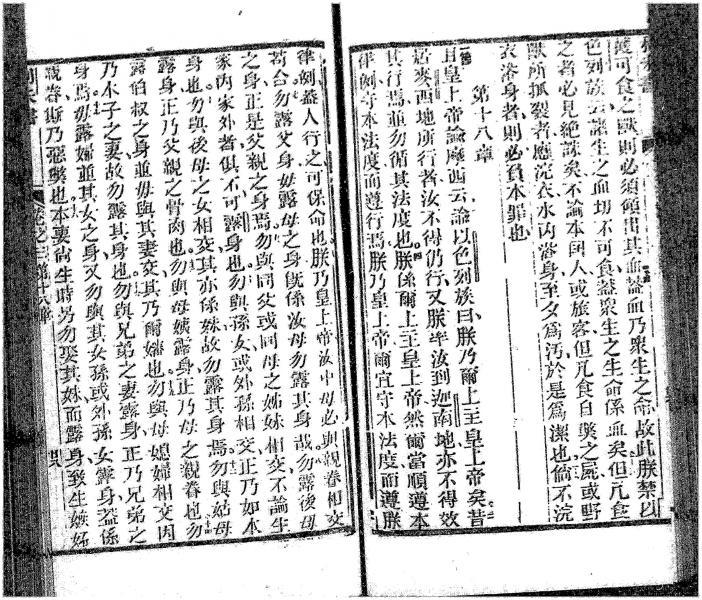 獲可食之獸則必須傾出其血蓋血乃眾生之命故此朕禁以
色列族云諸生之血切不可食蓋眾生之生命係血矣但凡食
之者必見絕誅矣不論本國人或旅客但凡食自斃之屍或野
獸所抓裂者應浣衣水內浴身至夕為汚於是為潔也倘不浣
衣浴身者則必負本罪也
第十八章
且皇上帝諭摩西云諭以色列族曰朕乃爾上主皇上帝矣昔
居麥西地所行者汝不得仍行又朕率汝到迦南地亦不得效
其行焉並勿循其法度也朕係爾上主皇上帝然爾當順遵本
律例守本法度而遵行焉朕乃皇上帝爾宜守本法度而遵朕
律例蓋人行之可保命也朕乃皇上帝汝中毋必與親眷相交
苟合勿露父身毋露母之身既係汝母勿露其身哉勿露後母
之身正是父親之身焉勿與同父或同母之姊妹相交不論生
家內家外者俱不可露身也勿與孫女或外孫相交正乃如本
身也勿與後母之女相交其亦係妹故勿露其身焉勿與姑母
露身正乃父親之骨肉也勿與母姨露身正乃母之親眷也勿
露伯叔之身並毋與其妻交其乃爾嬸也勿與母媳婦相交因
乃本子之妻故勿露其身也勿與兄弟之妻露身正乃兄弟之
身焉勿露婦並其女之身又勿與其女孫或外孫女露身蓋係
親眷斯乃惡獘也本妻尚生時另勿娶其妹而露身致生嫉妬
卷之三第十八章